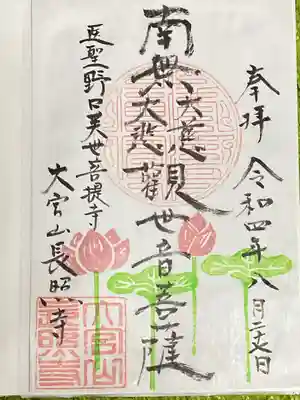 奉拝
令和四年八月二十六日
南無大慈大悲観世音菩薩
医聖野口英世菩提寺
大宮山長照寺
大宮山
長照寺